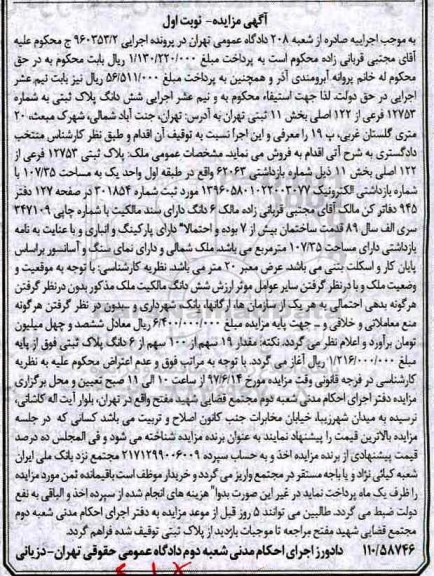 آگهی مزایده- نوبت اول
به موجب اجراییه صادره از شعبه ۲۰۸ دادگاه عمومی تهران در پرونده اجرایی ۹۶۰۳۵۳/۲ ج محکوم علیه
آقای مجتبی قربانی زاده محکوم است به پرداخت مبلغ ۱/۱۳۰/۲۲۰/۰۰۰ ریال بابت محکوم به در حق
محکوم له خانم پروانه آبرومندی آذر و همچنین به پرداخت مبلغ ۵۶/۵۱۱/۰۰۰ ریال نیز بابت نیم عشر
اجرایی در حق دولت. لذا جهت استیفاء محکوم به و نیم عشر اجرایی شش دانگ پلاک ثبتی به شماره
۱۲۷۵۳ فرعی از ۱۲۲ اصلی بخش ۱۱ ثبتی تهران به آدرس: تهران، جنت آباد شمالی، شهرک مبعث، ۲۰
متری گلستان غربی، پ ۱۹ را معرفی و این اجرا نسبت به توقیف آن اقدام و طبق نظر کارشناس منتخب
دادگستری به شرح آتی اقدام به فروش می نماید. مشخصات عمومی ملک: پلاک ثبتی ۱۲۷۵۳ فرعی از
۱۲۲ اصلی بخش ۱۱ ذیل شماره بازداشتی ۶۲۰۶۳ واقع در طبقه اول واحد یک به مساحت ۱۰۷/۳۵ با
شماره بازداشتی الکترونیک ۱۳۹۶۰۵۸۰۱۰۲۲۰۰۳۰۷۷ مورد ثبت شماره ۳۰۱۸۵۴ در صفحه ۱۲۷ دفتر
۹۴۵ دفاتر کن مالک آقای مجتبی قربانی زاده مالک ۶ دانگ دارای سند مالکیت با شماره چاپی ۳۴۷۱۰۹
سری الف سال ۸۹ قدمت ساختمان بیش از ۷ بوده و احتمالا" دارای پارکینگ و انباری و با عنایت به نامه
بازداشتی دارای مساحت ۱۰۷/۳۵ مترمربع می باشد. ملک شمالی و دارای نمای سنگ و آسانسور براساس
پایان کار و اسکلت بتنی می باشد. عرض معبر ۲۰ متر می باشد. نظریه کارشناسی: با توجه به موقعیت و
وضعیت ملک و با درنظر گرفتن سایر عوامل موثر ارزش شش دانگ مالکیت ملک مذکور بدون درنظر گرفتن
هرگونه بدهی احتمالی به هر یک از سازمان ها، ارگانها، بانک، شهرداری و ...بدون در نظر گرفتن هرگونه
منع معاملاتی و خلافی و ... جهت پایه مزایده مبلغ ۶/۴۰۰/۰۰۰/۰۰۰ ریال معادل ششصد و چهل میلیون
تومان برآورد و اعلام نظر می گردد. نکته: مقدار ۱۹ سهم از ۱۰۰ سهم از ۶ دانگ پلاک ثبتی فوق از پایه
مبلغ ۱/۲۱۶/۰۰۰/۰۰۰ ریال آغاز می گردد. با توجه به مراتب فوق و عدم اعتراض محکوم علیه به نظریه
کارشناسی در فرجه قانونی وقت مزایده مورخ ۹۷/۶/۱۴ از ساعت ۱۰ الی ۱۱ صبح تعیین و محل برگزاری
مزایده دفتر اجرای احکام مدنی شعبه دوم مجتمع قضایی شهید مفتح واقع در تهران، بلوار آیت اله کاشانی،
نرسیده به میدان شهرزیبا، خیابان مخابرات جنب کانون اصلاح و تربیت می باشد کسانی که در جلسه
مزایده بالاترین قیمت را پیشنهاد نمایند به عنوان برنده مزایده شناخته می شود و فی المجلس ده درصد
قیمت پیشنهادی از برنده مزایده اخذ و به حساب سپرده ۲۱۷۱۲۹۹۰۰۶۰۰۹ مجتمع نزد بانک ملی ایران
شعبه کیائی نژاد و یا باجه مستقر در مجتمع واریز می گردد و خریدار موظف است باقیمانده ثمن مورد مزایده
را ظرف یک ماه پرداخت نماید در غیر این صورت بدوا" هزینه های انجام شده از سپرده اخذ و الباقی به نفع
دولت ضبط می گردد. طالبین می توانند ۵ روز قبل از موعد مزایده به دفتر اجرای احکام مدنی شعبه دوم
مجتمع قضایی شهید مفتح مراجعه تا موجبات بازدید از پلاک ثبتی توقیف شده فراهم گردد.
۱۱۰/۵۸۷۴۶ دادورز اجرای احکام مدنی شعبه دوم دادگاه عمومی حقوقی تهران-دزیانی